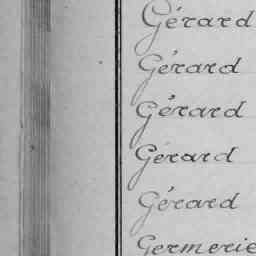 Gérard
Gérard
Gérard
Gérard
Gérard
Germerie